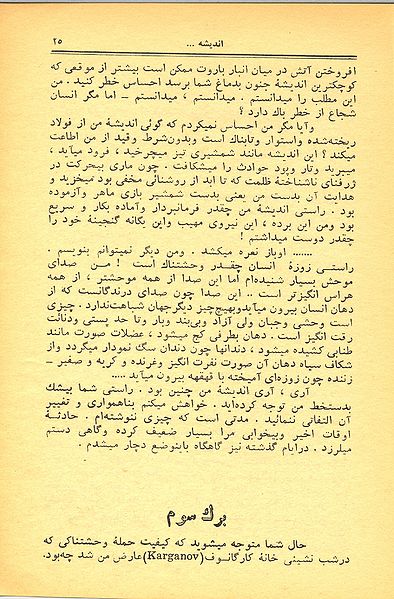 اندیشه ... ۲۵
افروختن آتش در میان انبار باروت ممکن است بیشتر از موقعی که
کوچکترین اندیشهٔ جنون بدماغ شما برسد احساس خطر کنید . من
این مطلب را میدانستم . میدانستم ، میدانستم – اما مگر انسان
شجاع از خطر باك دارد ؟
وآیا مگر من احساس نمیکردم که گوئی اندیشهٔ من از فولاد
ریخته‌شده واستوار وتابناك است وبدون‌شرط وقید از من اطاعت
میکند ؟ این اندیشه مانند شمشیری تیز میچرخید ، فرود میآید ،
میبرید وتار وپود حوادث را میشکافت . چون ماری بیحرکت در
ژرفنای ناشناختهٔ ظلمت که تا ابد از روشنائی مخفی بود میخزید و
هدایت آن بدست من یعنی بدست شمشیر بازی ماهر وآزموده
بود . راستی اندیشهٔ من چقدر فرمانبردار وآماده بکار و سریع
بود ومن این برده ، این نیروی مهیب واین یگانه گنجینهٔ خود را
چقدر دوست میداشتم !
....... اوباز نعره میکشد . ومن دیگر نمیتوانم بنویسم .
راستی زوزهٔ انسان چقدر وحشتناك است ! من صدای
موحش بسیار شنیده‌ام اما این صدا از همه موحشتر ، از همه
هراس انگیزتر است .. این صدا چون صدای درندگانست که از
دهان انسان بیرون میآید وبهیچ‌چیز دیگرجهان شباهت‌ندارد . چیزی
است وحشی وجبان ولی آزاد وبی‌بند وبار وتا حد پستی ودنائت
رقت انگیز است . دهان بطرفی کج میشود ، عضلات صورت مانند
طنابی کشیده میشود ، دندانها چون دندان سگ نمودار میگردد واز
شکاف سیاه دهان آن صورت نفرت انگیز وغرنده و کریه و صفیر –
زننده چون زوزه‌ای آمیخته با قهقهه بیرون میآید ....
آری ، آری اندیشهٔ من چنین بود . راستی شما بیشك
بدستخط من توجه کرده‌اید . خواهش میکنم بناهمواری و تغییر
آن التفاتی ننمائید . مدتی است که چیزی ننوشته‌ام . حادثهٔ
اوقات اخیر وبیخوابی مرا بسیار ضعیف کرده وگاهی دستم
میلرزد . درایام گذشته نیز گاهگاه باینوضع دچار میشدم .
برك سوم
حال شما متوجه میشوید که کیفیت حملهٔ وحشتناکی که
درشب نشینی خانهٔ کارگانوف (Karganov) عارض من شد چه‌بود.